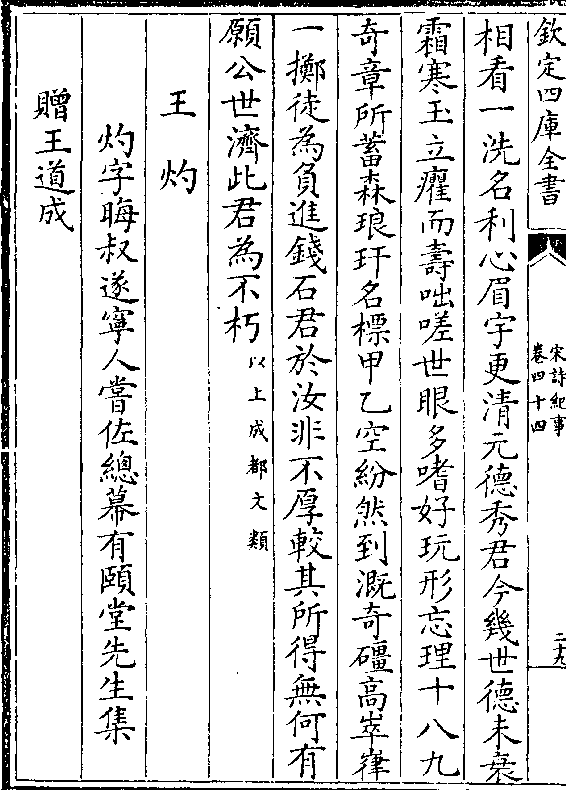 欽定四庫全書
宋詩紀事
卷四十四
二十九
相看一洗名利心眉宇更清元德秀君今幾世德未衰
霜寒玉立癯而壽咄嗟世眼多嗜好玩形忘理十八九
奇章所蓄森琅玕名標甲乙空紛然到溉奇礓高崒嵂
一擲徒為負進錢石君於汝非不厚較其所得無何有
願公世濟此君為不朽以上成都文類
王灼
灼字晦叔遂寧人嘗佐總幕有頤堂先生集
贈王道成